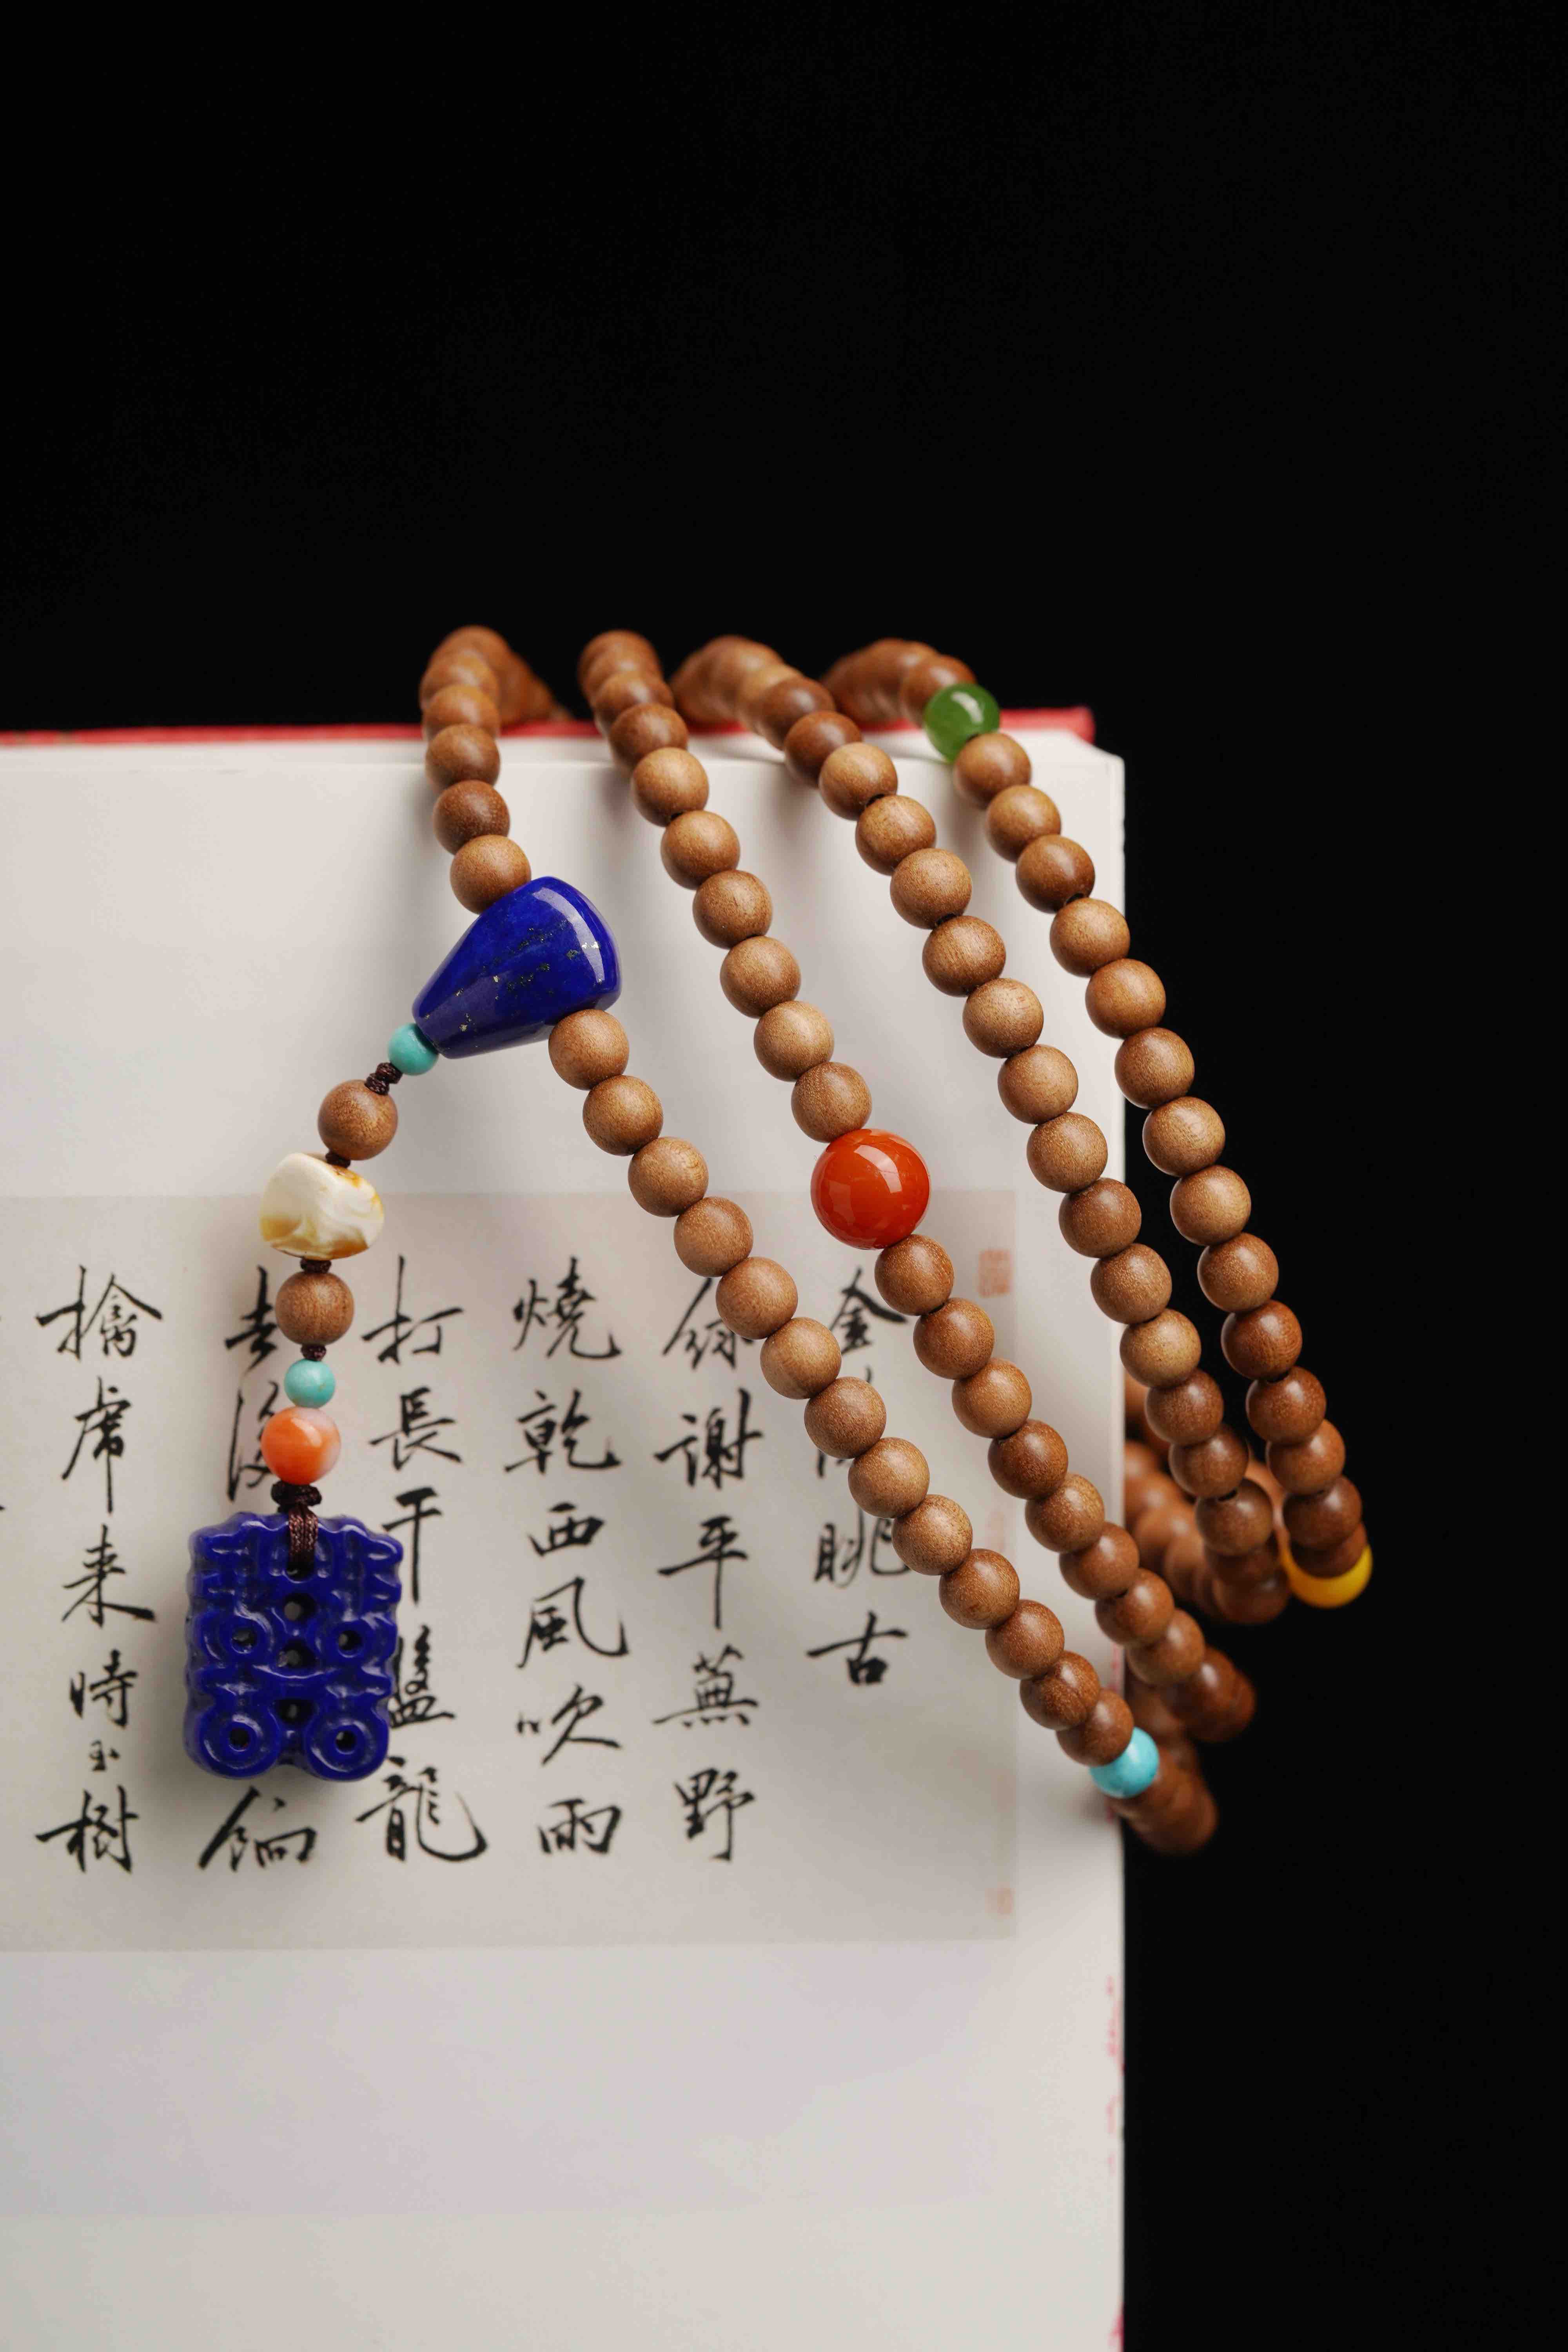 金眺古
謝平蕪野
燒乾西風吹雨
打長干盤龍
去餉
擒虎来時玉樹